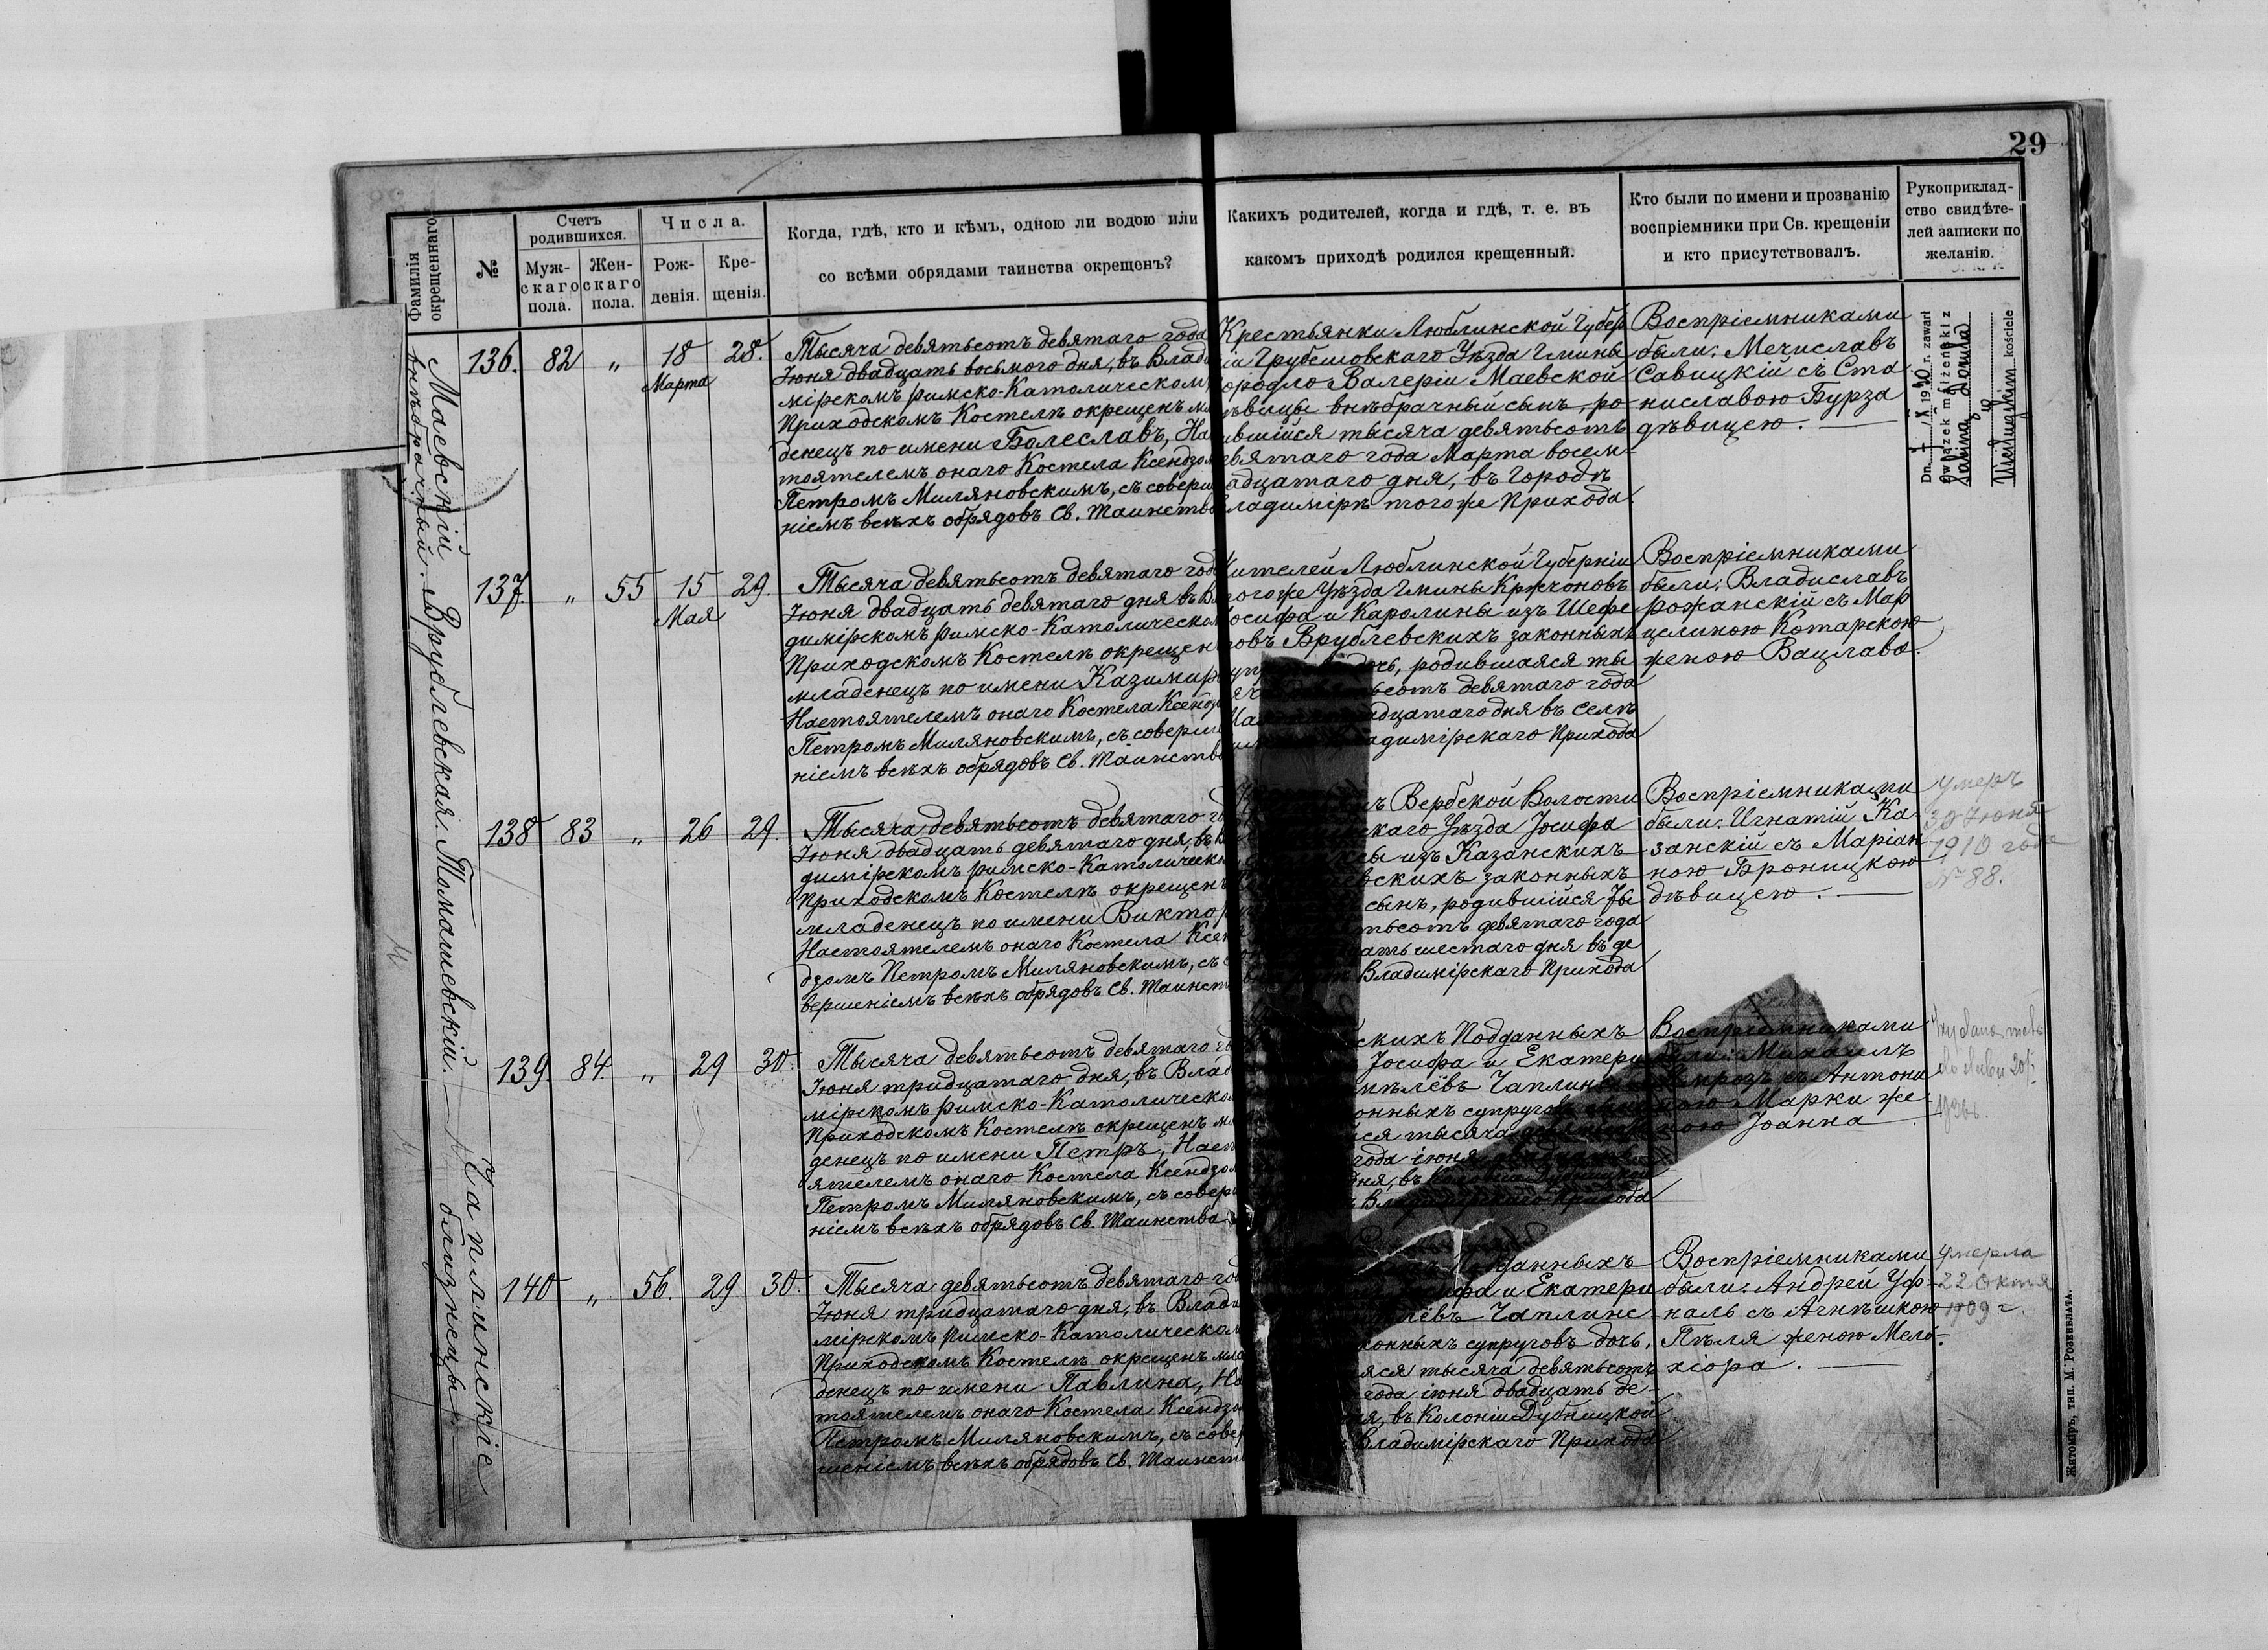 29
Фамилія
окрещеннаго.
№
Счетъ
родившихся.
Муж-
скаго
пола.
Жен-
скаго
пола.
Числа.
Рож-
денія.
Кре-
щенія.
Когда, гдѣ, кто и кѣмъ, одною ли водою или
со всѣми обрядами таинства окрещенъ?
Какихъ родителей, когда и гдѣ, т. е. въ
какомъ приходѣ родился крещенный.
Кто были по имени и прозванію
воспріемники при Св. крещеніи
и кто присутствовалъ.
Рукоприклад-
ство свидѣте-
лей записки по
желанію.
Маевскій
внѣбрачный.
136. 82 " 18 28.
Марта
Тысяча девятьсотъ девятаго года
Іюня двадцать восьмого дня, въ Влади
мірскомъ римско-Католическомъ
Приходскомъ Костелѣ окрещенъ мла
денецъ по имени Болеславъ, Нас
тоятелемъ онаго Костела Ксендзомъ
Петромъ Миляновскимъ, съ соверше
ніемъ всѣхъ обрядовъ Св. Таинства
Крестьянки Люблинской Губер
ніи Грубешовскаго Уѣзда Гмины
Городло Валеріи Маевской
дѣвицы внѣбрачный сынъ, ро
дившійся тысяча девятьсотъ
девятаго года Марта восем
надцатаго дня, въ Городѣ
Владимірѣ того же Прихода.
Воспріемниками
были: Мечиславъ
Савицкій съ Ста
ниславою Бурза
дѣвицею.
Dn. 1/X 1930 r. zawarł
związek małżeński z
w
kościele
Врублевская.
137. " 55 15 29.
Мая
Тысяча девятьсотъ девятаго года
Іюня двадцать девятаго дня въ Вла
димірскомъ римско-Католическомъ
Приходскомъ Костелѣ окрещенъ
младенецъ по имени Казимира
Настоятелемъ онаго Костела Ксендзомъ
Петромъ Миляновскимъ, съ соверше
ніемъ всѣхъ обрядовъ Св. Таинства
Жителей Люблинской Губерніи
того же Уѣзда Гмины Кржчоновъ
Іосифа и Каролины изъ Шефе
ровъ Врублевскихъ законныхъ
дочь, родившаяся ты
девятьсотъ девятаго года
дня въ селѣ
Владимірскаго Прихода
Воспріемниками
были: Владиславъ
Рожанскій съ Мар
целиною Котарскою
женою Вацлава.
Томашевскій.
138 83 " 26 29.
Тысяча девятьсотъ девятаго года
Іюня двадцать девятаго дня, въ Вла
димірскомъ римско-Католическомъ
Приходскомъ Костелѣ окрещенъ
младенецъ по имени Викторъ
Настоятелемъ онаго Костела Ксен
дзомъ Петромъ Миляновскимъ, съ со
вершеніемъ всѣхъ обрядовъ Св. Таинства
Вербской Волости
Уѣзда Іосифа
изъ Казанскихъ
законныхъ
сынъ, родившійся ты
девятьсотъ девятаго года
шестаго дня въ де
Владимірскаго Прихода
Воспріемниками
были: Игнатій Ка-
занскій съ Маріан
ною Броницкою
дѣвицею.
Умеръ
30 Іюня
1910 года
№ 88.
Чаплинскіе
близнецы
139. 84. " 29 30.
Тысяча девятьсотъ девятаго года
Іюня тридцатаго дня, въ Влади
мірскомъ римско-Католическомъ
Приходскомъ Костелѣ окрещенъ мла
денецъ по имени Петръ, Насто
ятелемъ онаго Костела Ксендзомъ
Петромъ Миляновскимъ, съ соверше
ніемъ всѣхъ обрядовъ Св. Таинства
Подданныхъ
Іосифа и Екатери
Чаплин
законныхъ супруговъ
тысяча
года іюня
дня, въ
Прихода
Воспріемниками
были: Михаилъ
съ Антони
ною Марки же-
ною Іоанна.
140 " 56. 29 30.
Тысяча девятьсотъ девятаго года
Іюня тридцатаго дня, въ Влади
мірскомъ римско-Католическомъ
Приходскомъ Костелѣ окрещенъ мла
денецъ по имени Павлина, Нас
тоятелемъ онаго Костела Ксендзомъ
Петромъ Миляновскимъ, съ совер
шеніемъ всѣхъ обрядовъ Св. Таинства
Подданныхъ
Іосифа и Екатери
Чаплинс
законныхъ супруговъ дочь,
тысяча девятьсотъ
года іюня двадцать де-
дня, въ Колоніи Дубницкой
Владимірскаго Прихода
Воспріемниками
были: Андрей Уф-
наль съ Агнѣшкою
Пѣля женою Мель-
хіора.
Умерла
22 Октя
1909 г.
Житоміръ, тип. М. Розенблата.